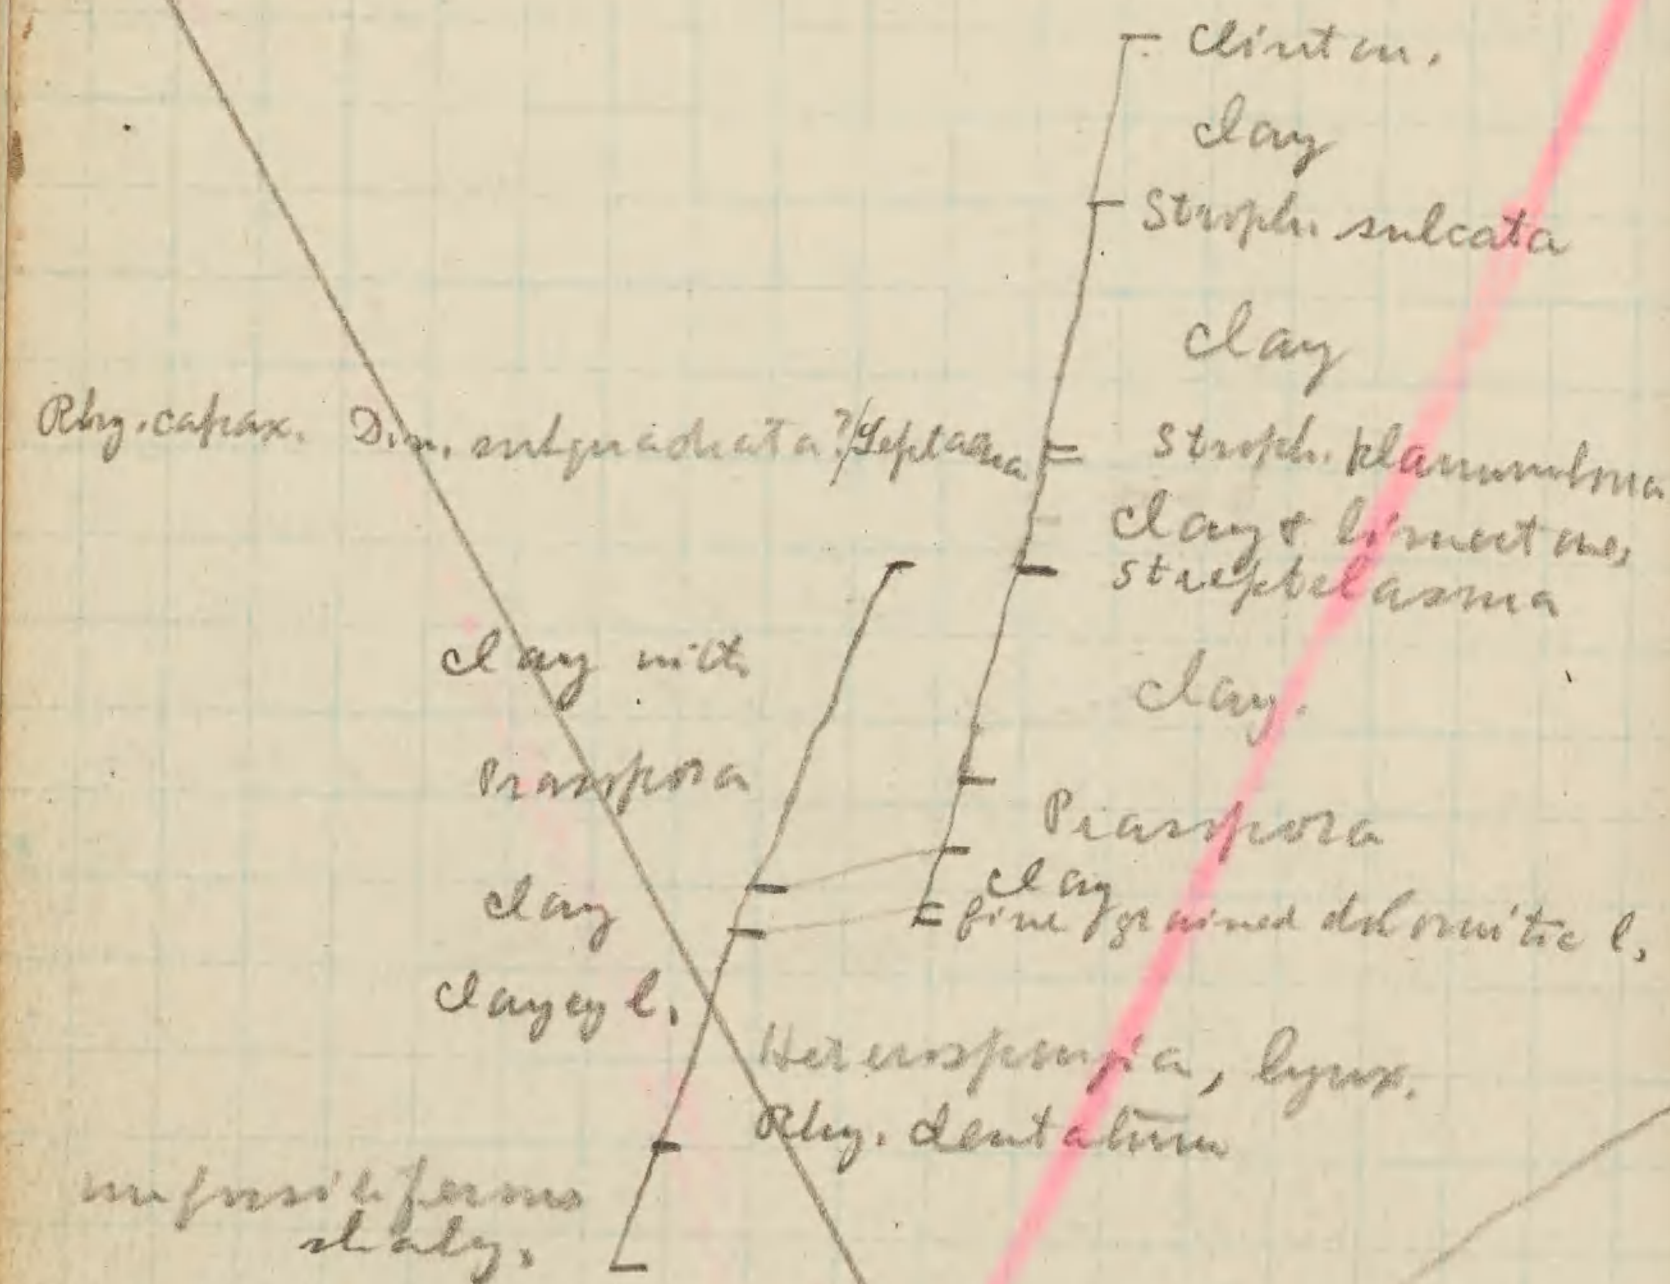 Clinton.
clay
Stroph. sulcata
clay
Rhy. capax. Din. subquadrata? Leptaena
Stroph. planumbona
clay & limestone,
Streptelasma
clay.
Prasopora
clay
fine grained dolomitic l.
clay with
Prasopora
clay
clayey l.
Heterospongia, lynx.
Rhy. dentatum
unfossiliferous
shaly.